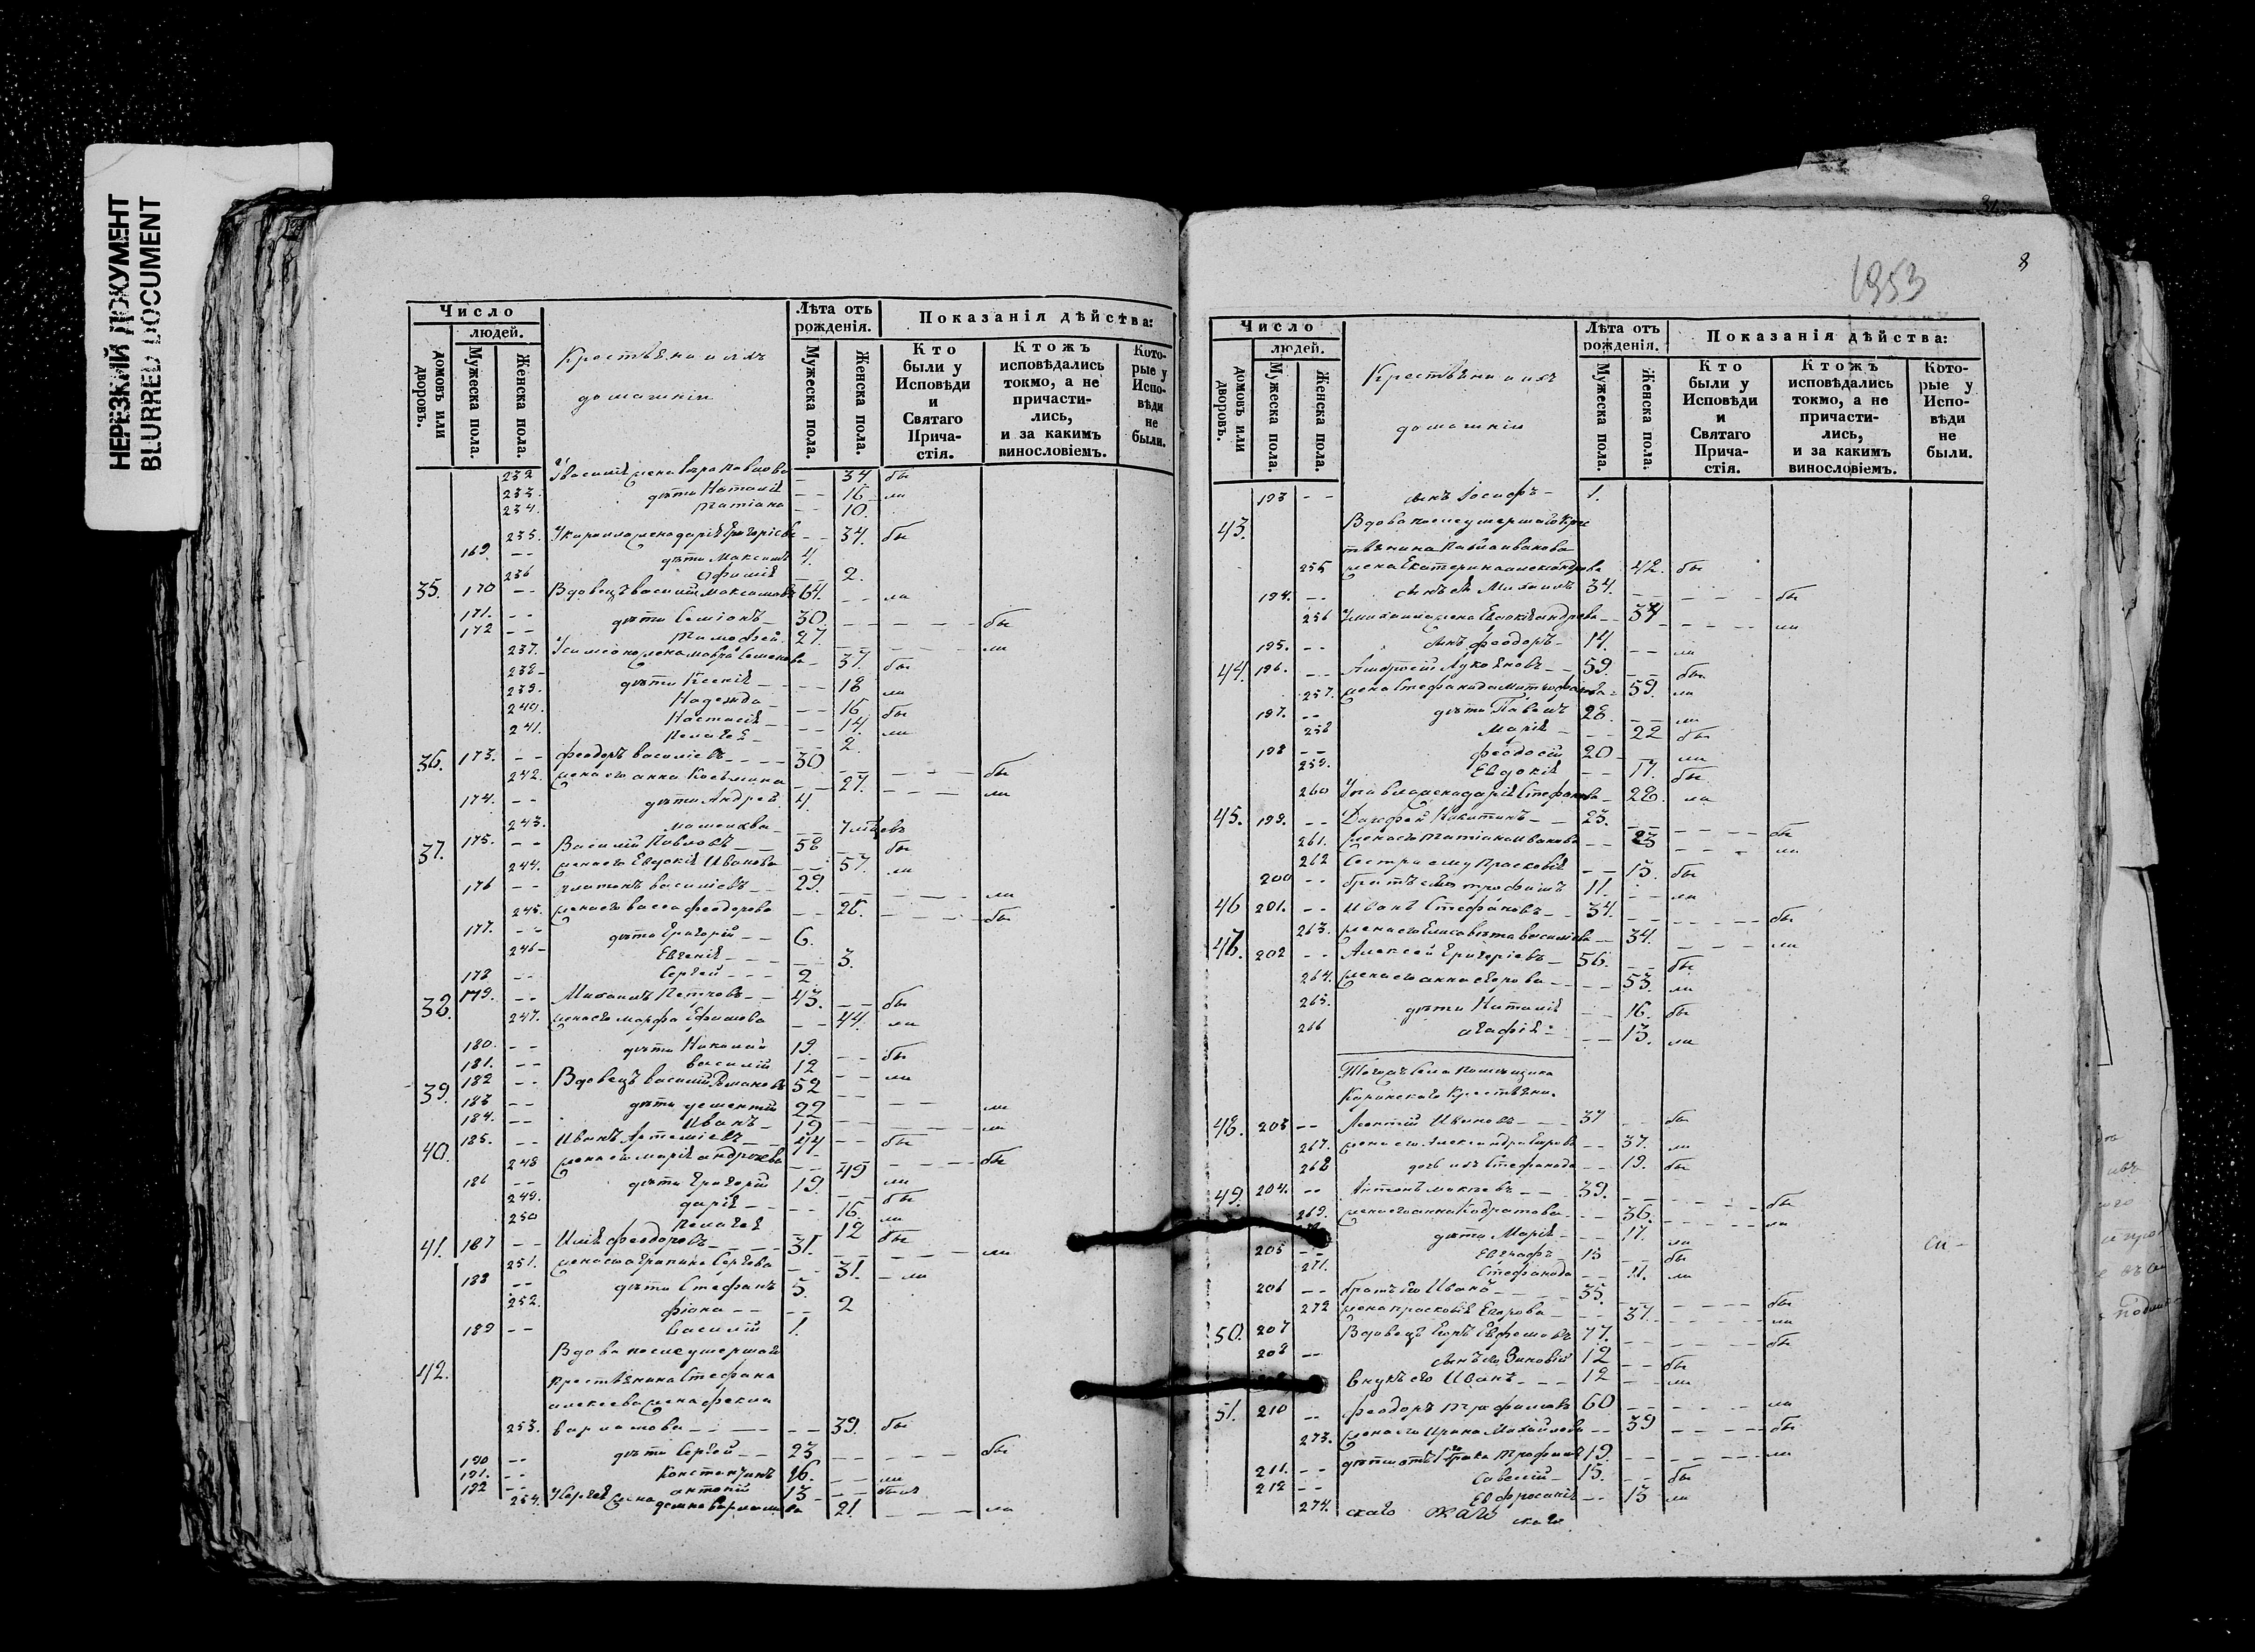 НЕРЕЗКИЙ ДОКУМЕНТ
BLURRED DOCUMENT
Число
людей.
домовъ или дворовъ.
Мужеска пола.
Женска пола.
Крестьяне и ихъ
домашніи
Лѣта отъ рожденія.
Мужеска пола.
Женска пола.
Показанія дѣйства:
Кто были у Исповѣди и Святаго Прича-стія.
Ктожъ исповѣдались токмо, а не причасти-лись, и за какимъ винословіемъ.
Кото-рые у Испо-вѣди не были.
232 Увасилія жена вера Павлова - 34 бы
233. дѣти Наталія - - 16 ли
234. Татіана - - 10.
235. жена дарія Григоріева - - 34. бы
169. - - дѣти Максимъ 4.
236 Офимія 2.
35. 170 - - Вдовецъ василій Максимовъ 64. - - ли
171. - - дѣти Семіонъ - 30. - - - - бы
172 - - Тимофей. 27. ли
237. Усимеона жена мавра Семенова - 37. бы
238 - дѣти Ксенія - - - 18 ли
239. Надежда - - - 16 бы
240. Настасія - - - 14. ли
241. Пелагея - - - 2.
36. 173. - - феодоръ василіевъ - - - - 30 - - - - бы
242. жена его анна Косьмина - - 27. - - - ли
174. - - дѣти Андрей 4.
243. - - 7 мцевъ
37. 175. - - Василій Павловъ - - 58 - - бы
244. жена его Евдокія Иванова - - 57. ли
176 - - платонъ василіевъ - - 29. - - - - ли
245. жена его васса феодорова - - 26. - - - - бы
177. - - дѣти Григорій - - 6.
246 - Евгенія - - - - 3.
178 - - Сергей - - - 2
38. 179. - - Михаилъ Петровъ - - 43. - - бы
247. жена его марфа Ефимова - - 44. ли
180. - - дѣти Николай 19. - - бы
181. - - василій 12 - - ли
39. 182 - - Вдовецъ василій Романовъ 52 - - ли
183 - - дѣти дементій 22 - - - ли
184. - - Иванъ - 19 - - бы
40. 185. - - Иванъ Артеміевъ - - 44 - - - - бы
248 жена его марія андреева - - 49 ли
186 - - дѣти Григорій 19. - - бы
249. дарія - - - - 16. ли
250 Пелагея - - 12 бы
41. 187 - - Илія феодоровъ - - - - 31. - - - - ли
251. жена его агрипина Сергѣева - - 31. - ли
188 - - дѣти Стефанъ 5.
252. фіона - - - - 2
189 - - василій 1.
42. Вдова после умершаго
крестьянина Стефана
алексеева жена фекла
253. варламова - - - - - 39. бы
190 - - дѣти Сергей - - 23 - - - - бы
191. - - Константинъ 16. - - ли
192 - - антоній 13 - - былъ
254. Усергея жена домна варламова 21. - - - ли
1953
8
Число
людей.
домовъ или дворовъ.
Мужеска пола.
Женска пола.
Крестьяне и ихъ
домашніи
Лѣта отъ рожденія.
Мужеска пола.
Женска пола.
Показанія дѣйства:
Кто были у Исповѣди и Святаго Прича-стія.
Ктожъ исповѣдались токмо, а не причасти-лись, и за какимъ винословіемъ.
Кото-рые у Испо-вѣди не были.
193 - - сынъ Іосифъ - 1.
43. Вдова после умершаго кре
стьянина Павла иванова
255 жена Екатерина александрова 42. бы
194. - - сынъ ея Михаилъ 34. - - - - - бы
256 Умихаила жена Евдокія андреева - - 34 - - - - ли
195. - - сынъ феодоръ - 14. - - ли
44. 196. - - Лукьяновъ - - 59. - - бы
257. жена Стефанида Митрофанова - 59. ли
197. - - дѣти Павелъ 28. - - ли
258 Марія - - - 22 бы
198 - - феодосій 20 - - ли
259. Евдокія - - 17. бы
260 Упавла жена дарія Стефанова - 28. ли
45. 199. - - Никитинъ - - 23. - - - - - бы
261. жена его татіана иванова - - 23 - - - - ли
262 Сестра ему Прасковія - - 15. бы
200 - - братъ его трофимъ 11. - - ли
46 201. - - Иванъ Стефановъ - - 34. - - - - - бы
263. жена его Елисовѣта василіева - - 34. - - - - ли
47. 202 - - Алексей Григоріевъ - 56. - - бы
264. жена его анна егорова - - - - 53. ли
265. дѣти Наталія - - 16. бы
266 агафія - - - 13. ли
Тогожъ села помещика
крестьяне.
48. 203 - - Леонтій Ивановъ - - - 37 - - бы
267. жена его Александра Егорова - - 37. ли
268 дочь ихъ Стефанида - - 19. бы
49. 204. - - Антонъ - - - 39. - - - - - бы
269. жена его анна - - 36. - - - - - ли
дѣти Марія - - - 17. ли
205 - - Евграфъ - 15 - - бы
271. Стефанида - - 11. ли
206 - - братъ его Иванъ - - - 35. - - - - - бы
272 жена прасковія Егорова - - - 37. - - - - - ли
50. 207 Вдовецъ 77. - - - - - бы
208 - - сынъ его Зиновій 12 - - бы
внукъ его Иванъ - - - 12 - - ли
51. 210 - - феодоръ трофимовъ 60 - - - - - ли
273. жена его Ирина Михайлова - - 39 - - - - бы
211. - - дѣти отъ 1го брака Трофимъ 19. - - - - - ли
212 - - Савелій - 15. - - бы
274. Евфросинія - - 13 ли
скаго